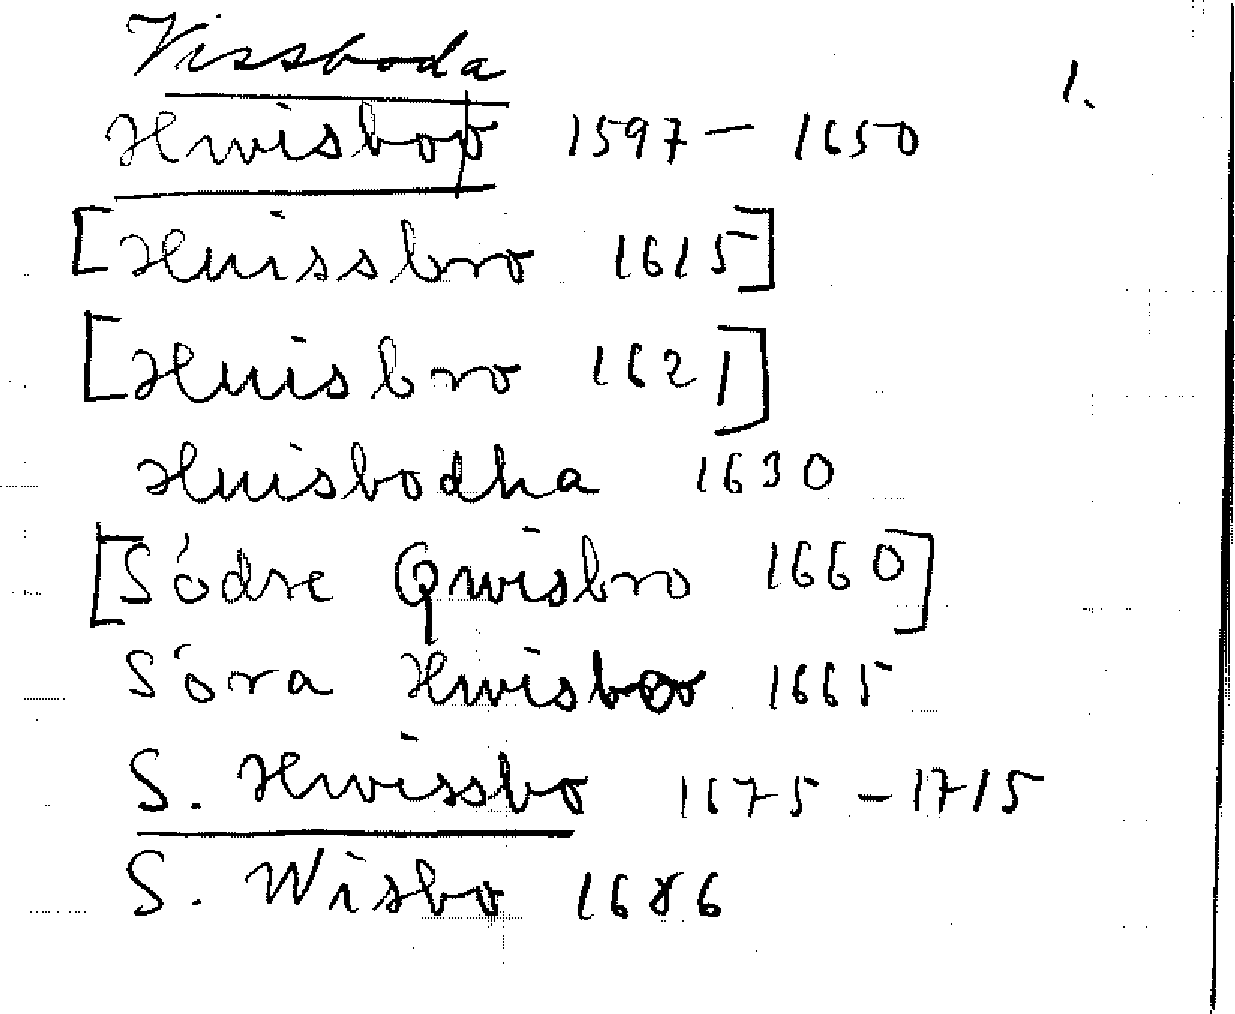 Vissboda
1.
Hwisboo 1597 – 1650
[Huissbro 1615]
[Huisbro 1621]
Huisbodha 1630
[Södre Qwisbro 1660]
Söra Hwisboo 1665
S. Hwissbo 1675 – 1715
S. Wisbo 1686